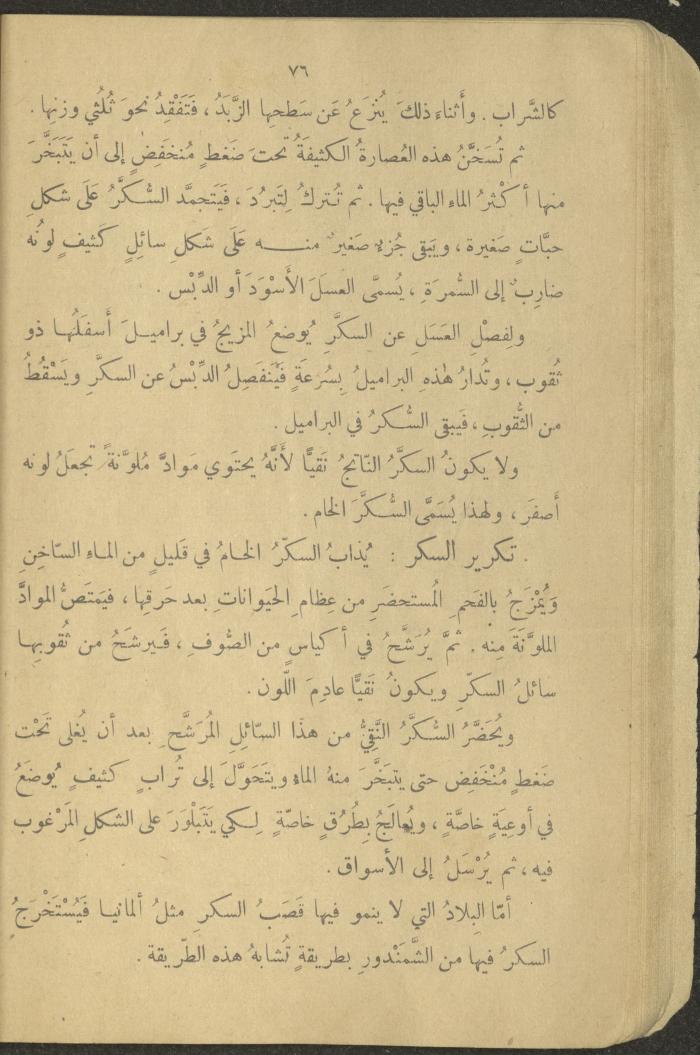 ٧٦
كالشَّراب. وأَثناء ذلكَ يُنزَعُ عَن سَطحِها الزَّبَدُ، فَتَفْقِدُ نحوَ ثُلُثَي وزنِها.
ثم تُسَخَّنُ هذه العُصارةُ الكثيفَةُ تحتَ ضَغطٍ مُنخَفِضٍ إلى أن يَتَبَخَّرَ
منها أكثرُ الماء الباقي فيها. ثم تُتركُ لِتَبرُدَ، فَيَتَجمَّد السُّكَّرُ عَلَى شكلِ
حبَّاتٍ صَغيرة، ويَبقى جُزءٌ صَغيرٌ منه عَلَى شَكلِ سائِلٍ كَثيفٍ لونُه
ضارِبٌ إلى السُّمرَةِ، يُسمَّى العسَلَ الأَسْوَدَ أو الدِّبْس.
ولِفصْلِ العَسَلِ عن السكَّرِ يُوضعُ المزيجُ في براميلَ أَسفَلُها ذو
ثُقوب، وتُدارُ هٰذهِ البراميلُ بِسُرعَةٍ فَيَنفَصِلُ الدِّبْسُ عن السكَّرِ ويَسْقُطُ
من الثُّقوبِ، فَيبقى السُّكرُ في البراميل.
ولا يكونُ السكَّرُ النّاتجُ نَقيًّا لأَنَّهُ يحتَوي مَوادَّ مُلوَّنةً تجعَلُ لونه
أصفَرَ، ولهذا يُسَمَّى السُّكَّرَ الخام.
. تكرير السكر : يُذابُ السكّرُ الخامُ في قَليلٍ من الماءِ السّاخِنِ
وَيُمْزَجُ بالفَحمِ المُستحضَرِ من عِظامِ الحَيَوانَاتِ بعد حَرقِها، فيَمتَصُّ الموادَّ
الملوَّنَةَ مِنه. ثمَّ يُرَشَّحُ في أكياسٍ من الصُّوفِ، فَيرشَحُ من ثُقوبِها
سائلُ السكّرِ ويكونُ نَقيًّا عادِمَ اللّون.
ويُحَضَّرُ السُّكَّرُ النَّقِيُّ من هذَا السّائِلِ المُرَشَّحِ بعد أن يُغلى تَحْت
ضَغطٍ مُنْخَفِض حتى يتبَخَّرَ منهُ الماء ويتَحَوَّلَ إلى تُرابٍ كثيفٍ يُوضَعُ
في أوعِيَةٍ خاصَّةٍ، ويُعالَجُ بِطُرُقٍ خاصّةٍ لِكي يَتَبَلْوَرَ على الشكلِ المَرْغوب
فيه، ثم يُرْسَلُ إلى الأسواق.
أمّا البِلادُ التي لا ينمو فيها قَصَبُ السكرِ مثلُ ألمانيا فَيُسْتَخْرَجُ
السكرُ فيها من الشَّمَنْدورِ بطريقةٍ تُشابهُ هذه الطّريقة.